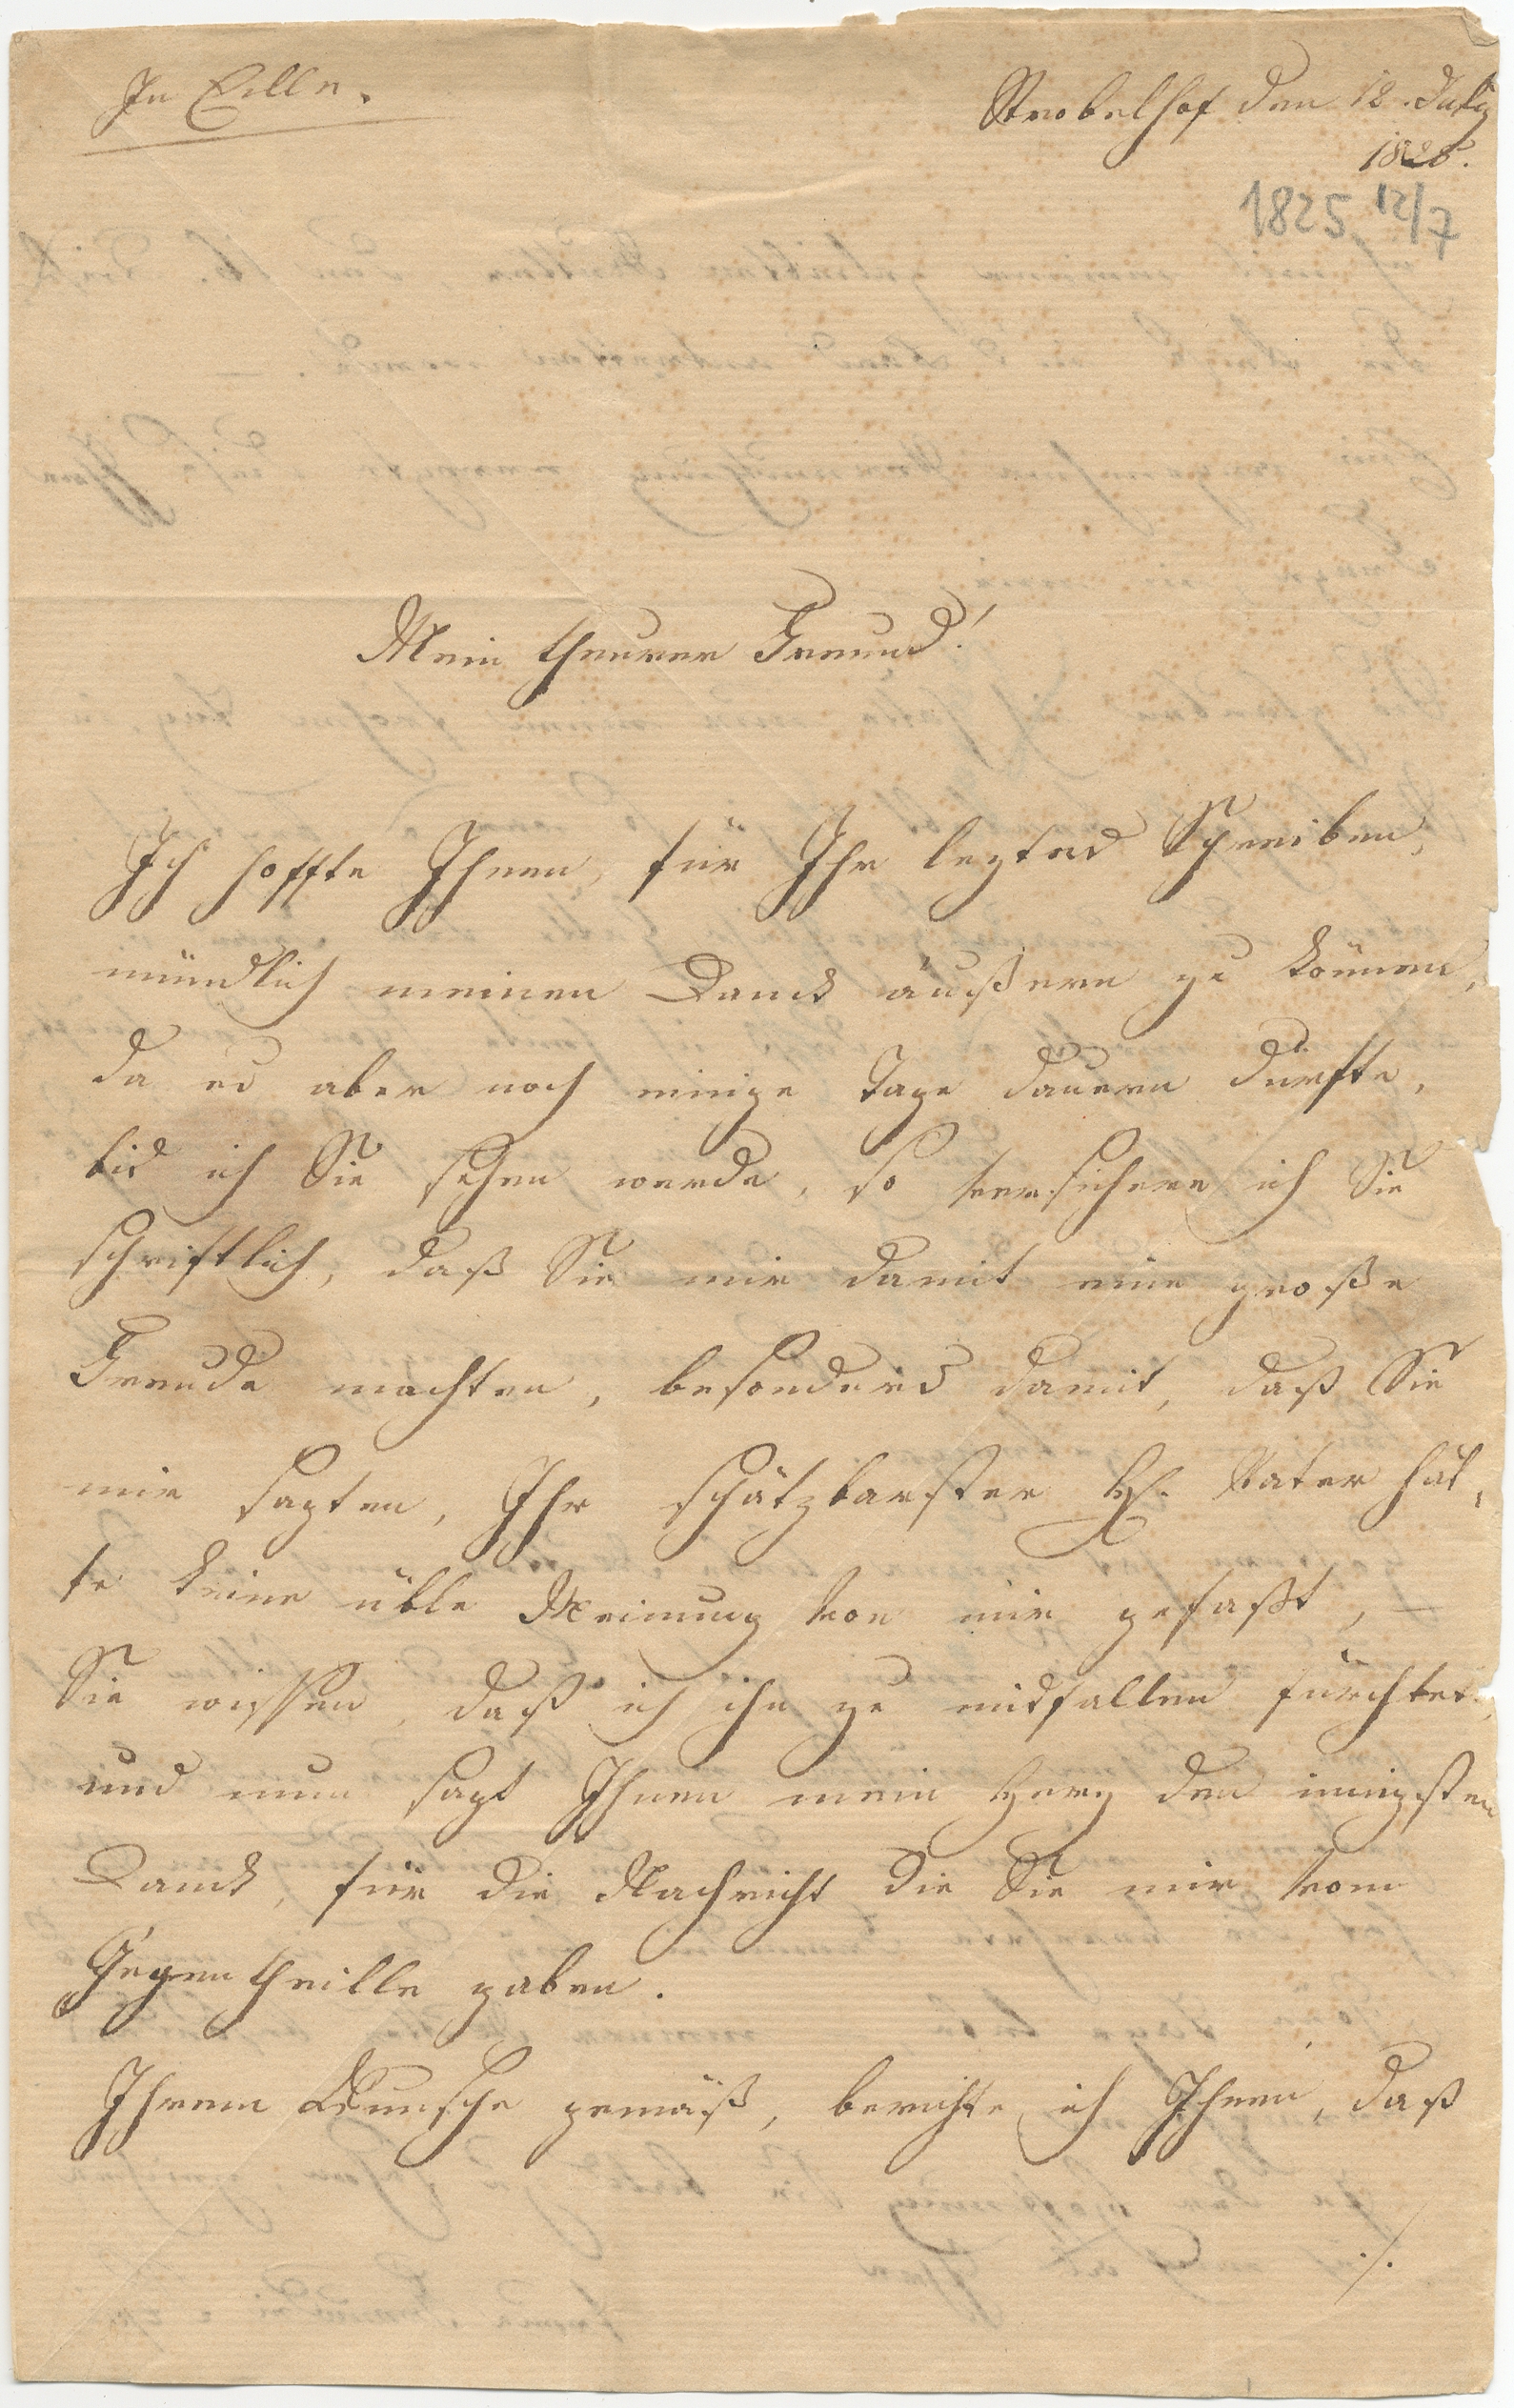 In Eille.
Strobelhof den 12. July
1825.
1825 12/7
Mein theurer Freund!
Ich hoffte Ihnen, für Ihr leztes Schreiben,
mündlich meinen Danck äußern zu können,
da es aber noch einige Tage dauern dürfte,
bis ich Sie sehen werde, so versichere ich Sie
schriftlich, daß Sie mir damit eine große
Freude machten, besonders damit, daß Sie
mir sagten, Ihr schätzbarster H. Vater hät,
te keine üble Meinung von mir gefaßt, –
Sie wissen, daß ich ihn zu misfallen fürchtete,
und nun sagt Ihnen mein Herz den innigsten
Danck, für die Nachricht die Sie mir vom
Gegentheille gaben.
Ihrem Wunsche gemäß, berichte ich Ihnen, daß
./.